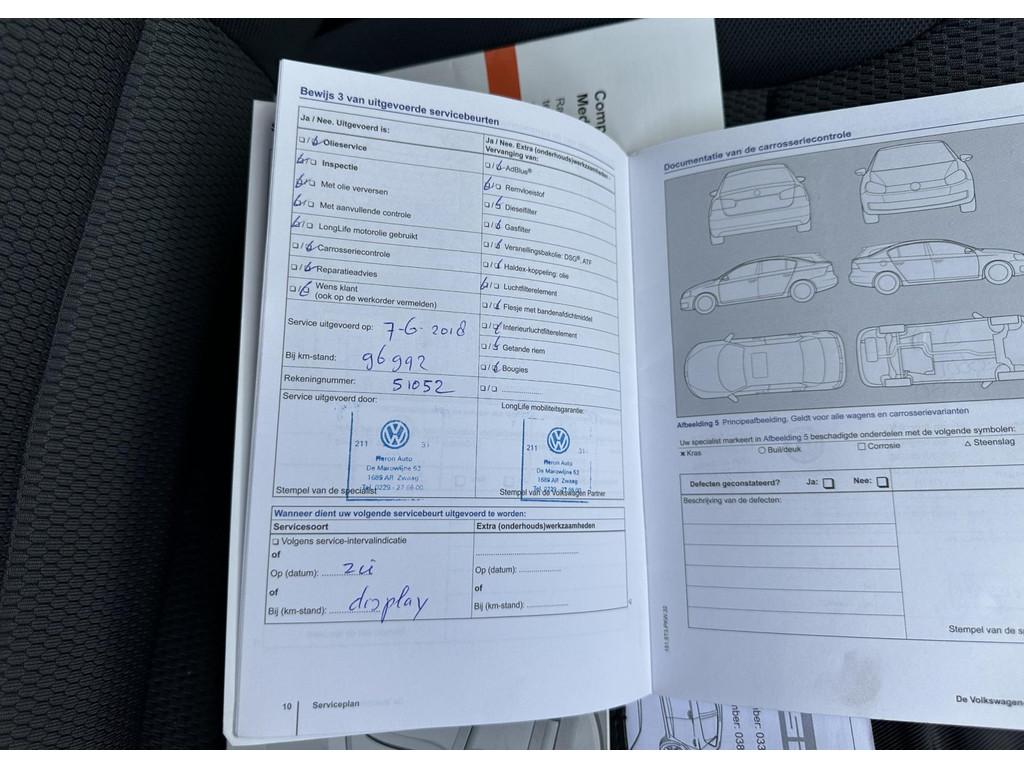 Bewijs 3 van uitgevoerde servicebeurten
Ja / Nee. Uitgevoerd is:
Olieservice
Inspectie
Met olie verversen
Met aanvullende controle
LongLife motorolie gebruikt
Carrosseriecontrole
Reparatieadvies
Wens klant
(ook op de werkorder vermelden)
Ja / Nee. Extra (onderhouds)werkzaamheden:
Vervanging van:
AdBlue®
Remvloeistof
Dieselfilter
Gasfilter
Versnellingsbakolie: DSG®, ATF
Haldex-koppeling: olie
Luchtfilterelement
Flesje met bandenafdichtmiddel
Interieurluchtfilterelement
Getande riem
Bougies
Service uitgevoerd op: 7-6-2018
Bij km-stand: 96992
Rekeningnummer: 51052
Service uitgevoerd door:
211
Heron Auto
De Marowijne 53
1689 AR Zwaag
Stempel van de specialist
LongLife mobiliteitsgarantie:
211
Heron Auto
De Marowijne 53
1689 AR Zwaag
Stempel van de Volkswagen Partner
Wanneer dient uw volgende servicebeurt uitgevoerd te worden:
Servicesoort
Volgens service-intervalindicatie
of
Op (datum): zii
of
Bij (km-stand): display
Extra (onderhouds)werkzaamheden
Op (datum):
of
Bij (km-stand):
10 Serviceplan
Documentatie van de carrosseriecontrole
Afbeelding 5 Principeafbeelding. Geldt voor alle wagens en carrosserievarianten
Uw specialist markeert in Afbeelding 5 beschadigde onderdelen met de volgende symbolen:
× Kras ○ Buil/deuk □ Corrosie △ Steenslag
Defecten geconstateerd? Ja: Nee:
Beschrijving van de defecten:
Stempel van de s
De Volkswagen